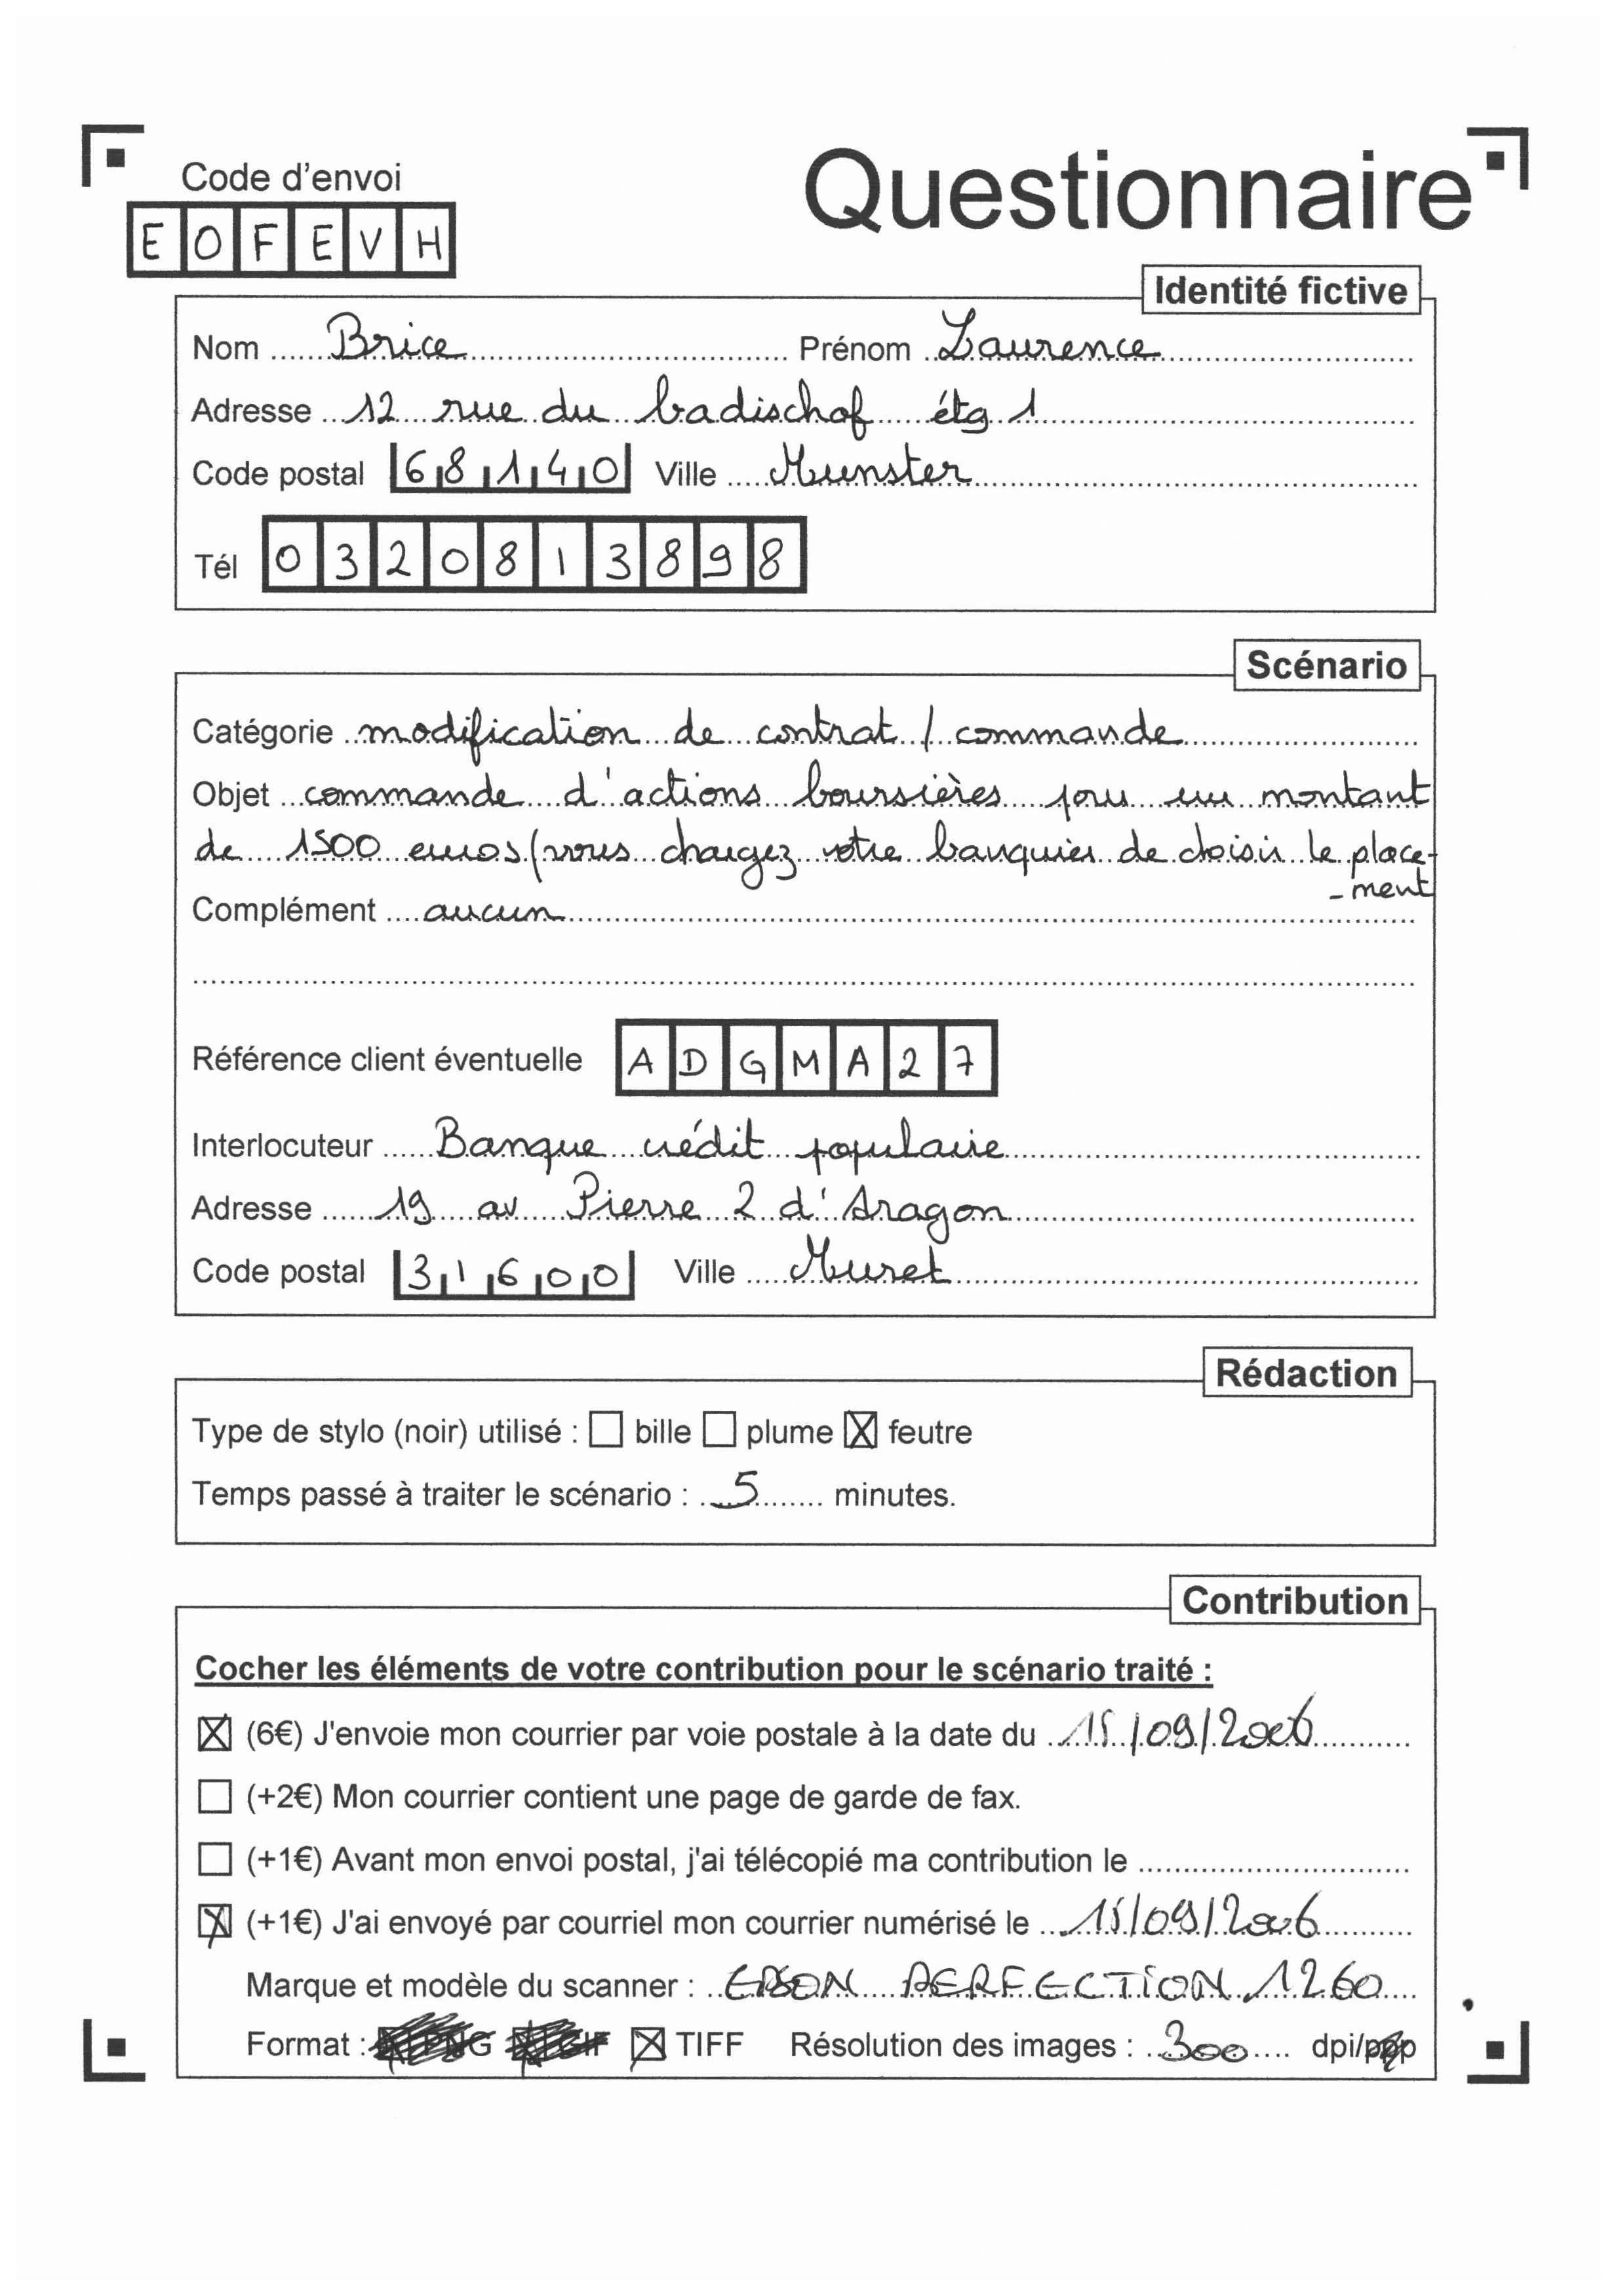 Code d'envoi
Questionnaire
E O F E V H
Identité fictive
Nom Brice Prénom Laurence
Adresse 12 rue du badischof étg 1
Code postal 68140 Ville Munster
Tél 0320813898
Scénario
Catégorie modification de contrat / commande
Objet commande d'actions boursières pour un montant
de 1500 euros (vous chargez votre banquier de choisir le place-
-ment
Complément aucun
Référence client éventuelle A D G M A 2 7
Interlocuteur Banque crédit populaire
Adresse 19 av Pierre 2 d'Aragon
Code postal 31600 Ville Muret
Rédaction
Type de stylo (noir) utilisé : ☐ bille ☐ plume ☒ feutre
Temps passé à traiter le scénario : 5 minutes.
Contribution
Cocher les éléments de votre contribution pour le scénario traité :
☒ (6€) J'envoie mon courrier par voie postale à la date du 15/09/2006
☐ (+2€) Mon courrier contient une page de garde de fax.
☐ (+1€) Avant mon envoi postal, j'ai télécopié ma contribution le
☒ (+1€) J'ai envoyé par courriel mon courrier numérisé le 15/09/2006
Marque et modèle du scanner : EPSON PERFECTION 1260
Format : PNG GIF ☒ TIFF Résolution des images : 300 dpi/ppp